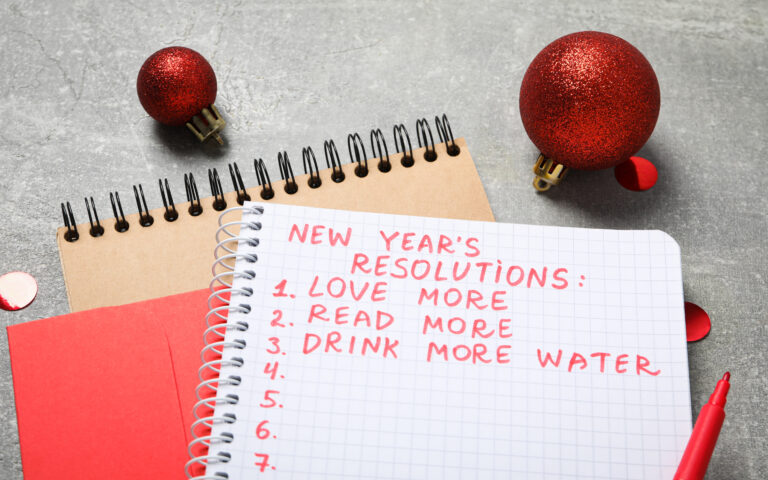 NEW YEAR'S
RESOLUTIONS:
1. LOVE MORE
2. READ MORE
3. DRINK MORE WATER
4.
5.
6.
7.